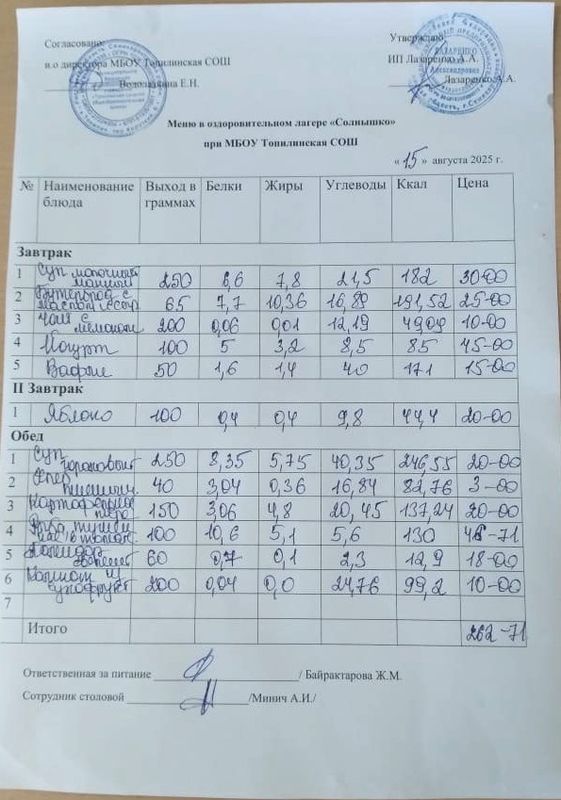 Согласовано:
Утверждаю:
и.о директора МБОУ Топилинская СОШ
ИП Лазаренко А.А.
Водолазкина Е.Н.
Лазаренко А.А.
Меню в оздоровительном лагере «Солнышко»
при МБОУ Топилинская СОШ
« 15 » августа 2025 г.
№ Наименование блюда Выход в граммах Белки Жиры Углеводы Ккал Цена
Завтрак
1 Суп молочный манный 250 6,6 7,8 21,5 182 30-00
2 Бутерброд с маслом 65 7,7 10,36 16,89 191,52 25-00
3 Чай с лимоном 200 0,06 0,01 12,19 49,09 10-00
4 Йогурт 100 5 3,2 8,5 85 45-00
5 Вафли 50 1,6 1,4 40 171 15-00
II Завтрак
1 Яблоко 100 0,4 0,4 9,8 44,4 20-00
Обед
1 Суп гороховый 250 8,35 5,75 40,35 246,55 20-00
2 Хлеб пшеничн. 40 3,04 0,36 16,84 82,76 3-00
3 Картофельное пюре 150 3,06 4,8 20,45 137,24 20-00
4 Рыба тушен. в томате 100 10,6 5,1 5,6 130 46-71
5 Помидор свежий 60 0,7 0,1 2,3 12,9 18-00
6 Компот из сухофрукт 200 0,04 0,0 24,76 99,2 10-00
7
Итого 262-71
Ответственная за питание / Байрактарова Ж.М.
Сотрудник столовой /Минич А.И./